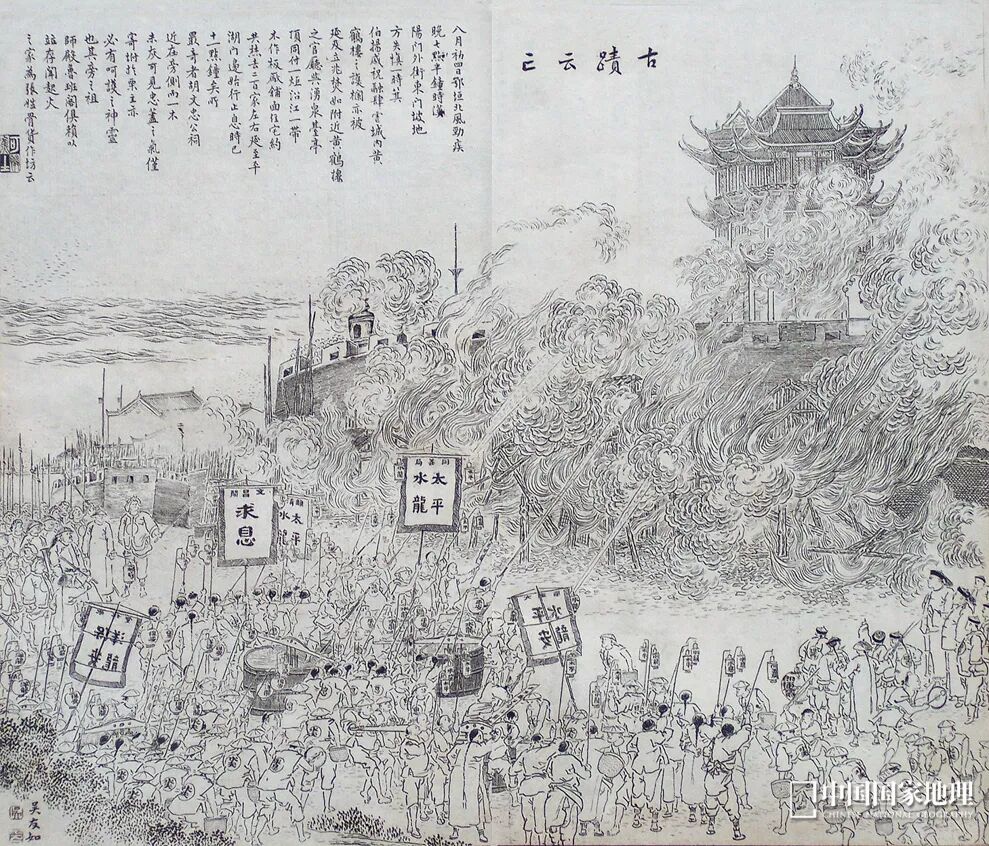 古蹟云亡
八月初四日鄂垣北風勁疾
晚七點半鐘時漢
陽門外街東門坡地
方失慎一時箕
伯揚威祝融肆虐城內黃
鶴樓之護欄亦被
延及立兆焚如附近黃鶴樓
之官廳與湧泉臺亭
頂同付一炬沿江一帶
木作板厰舖面住宅約
共燃去二百家左右延至平
湖門邊始行止息時已
十一點鐘矣所
最奇者胡文忠公祠
近在旁側而一木
未灰可見忠藎之氣僅
寄栟於栗主亦
必有呵護之神靈
也其旁之祖
師殿魯班閣俱賴以
並存聞起火
之家為張姓骨貨作坊云
同善局
太平
水龍
文昌閣
求息
太平
水龍
祥龍
平安
水龍
吳友如
中国国家地理
CHINESE NATIONAL GEOGRAPHY